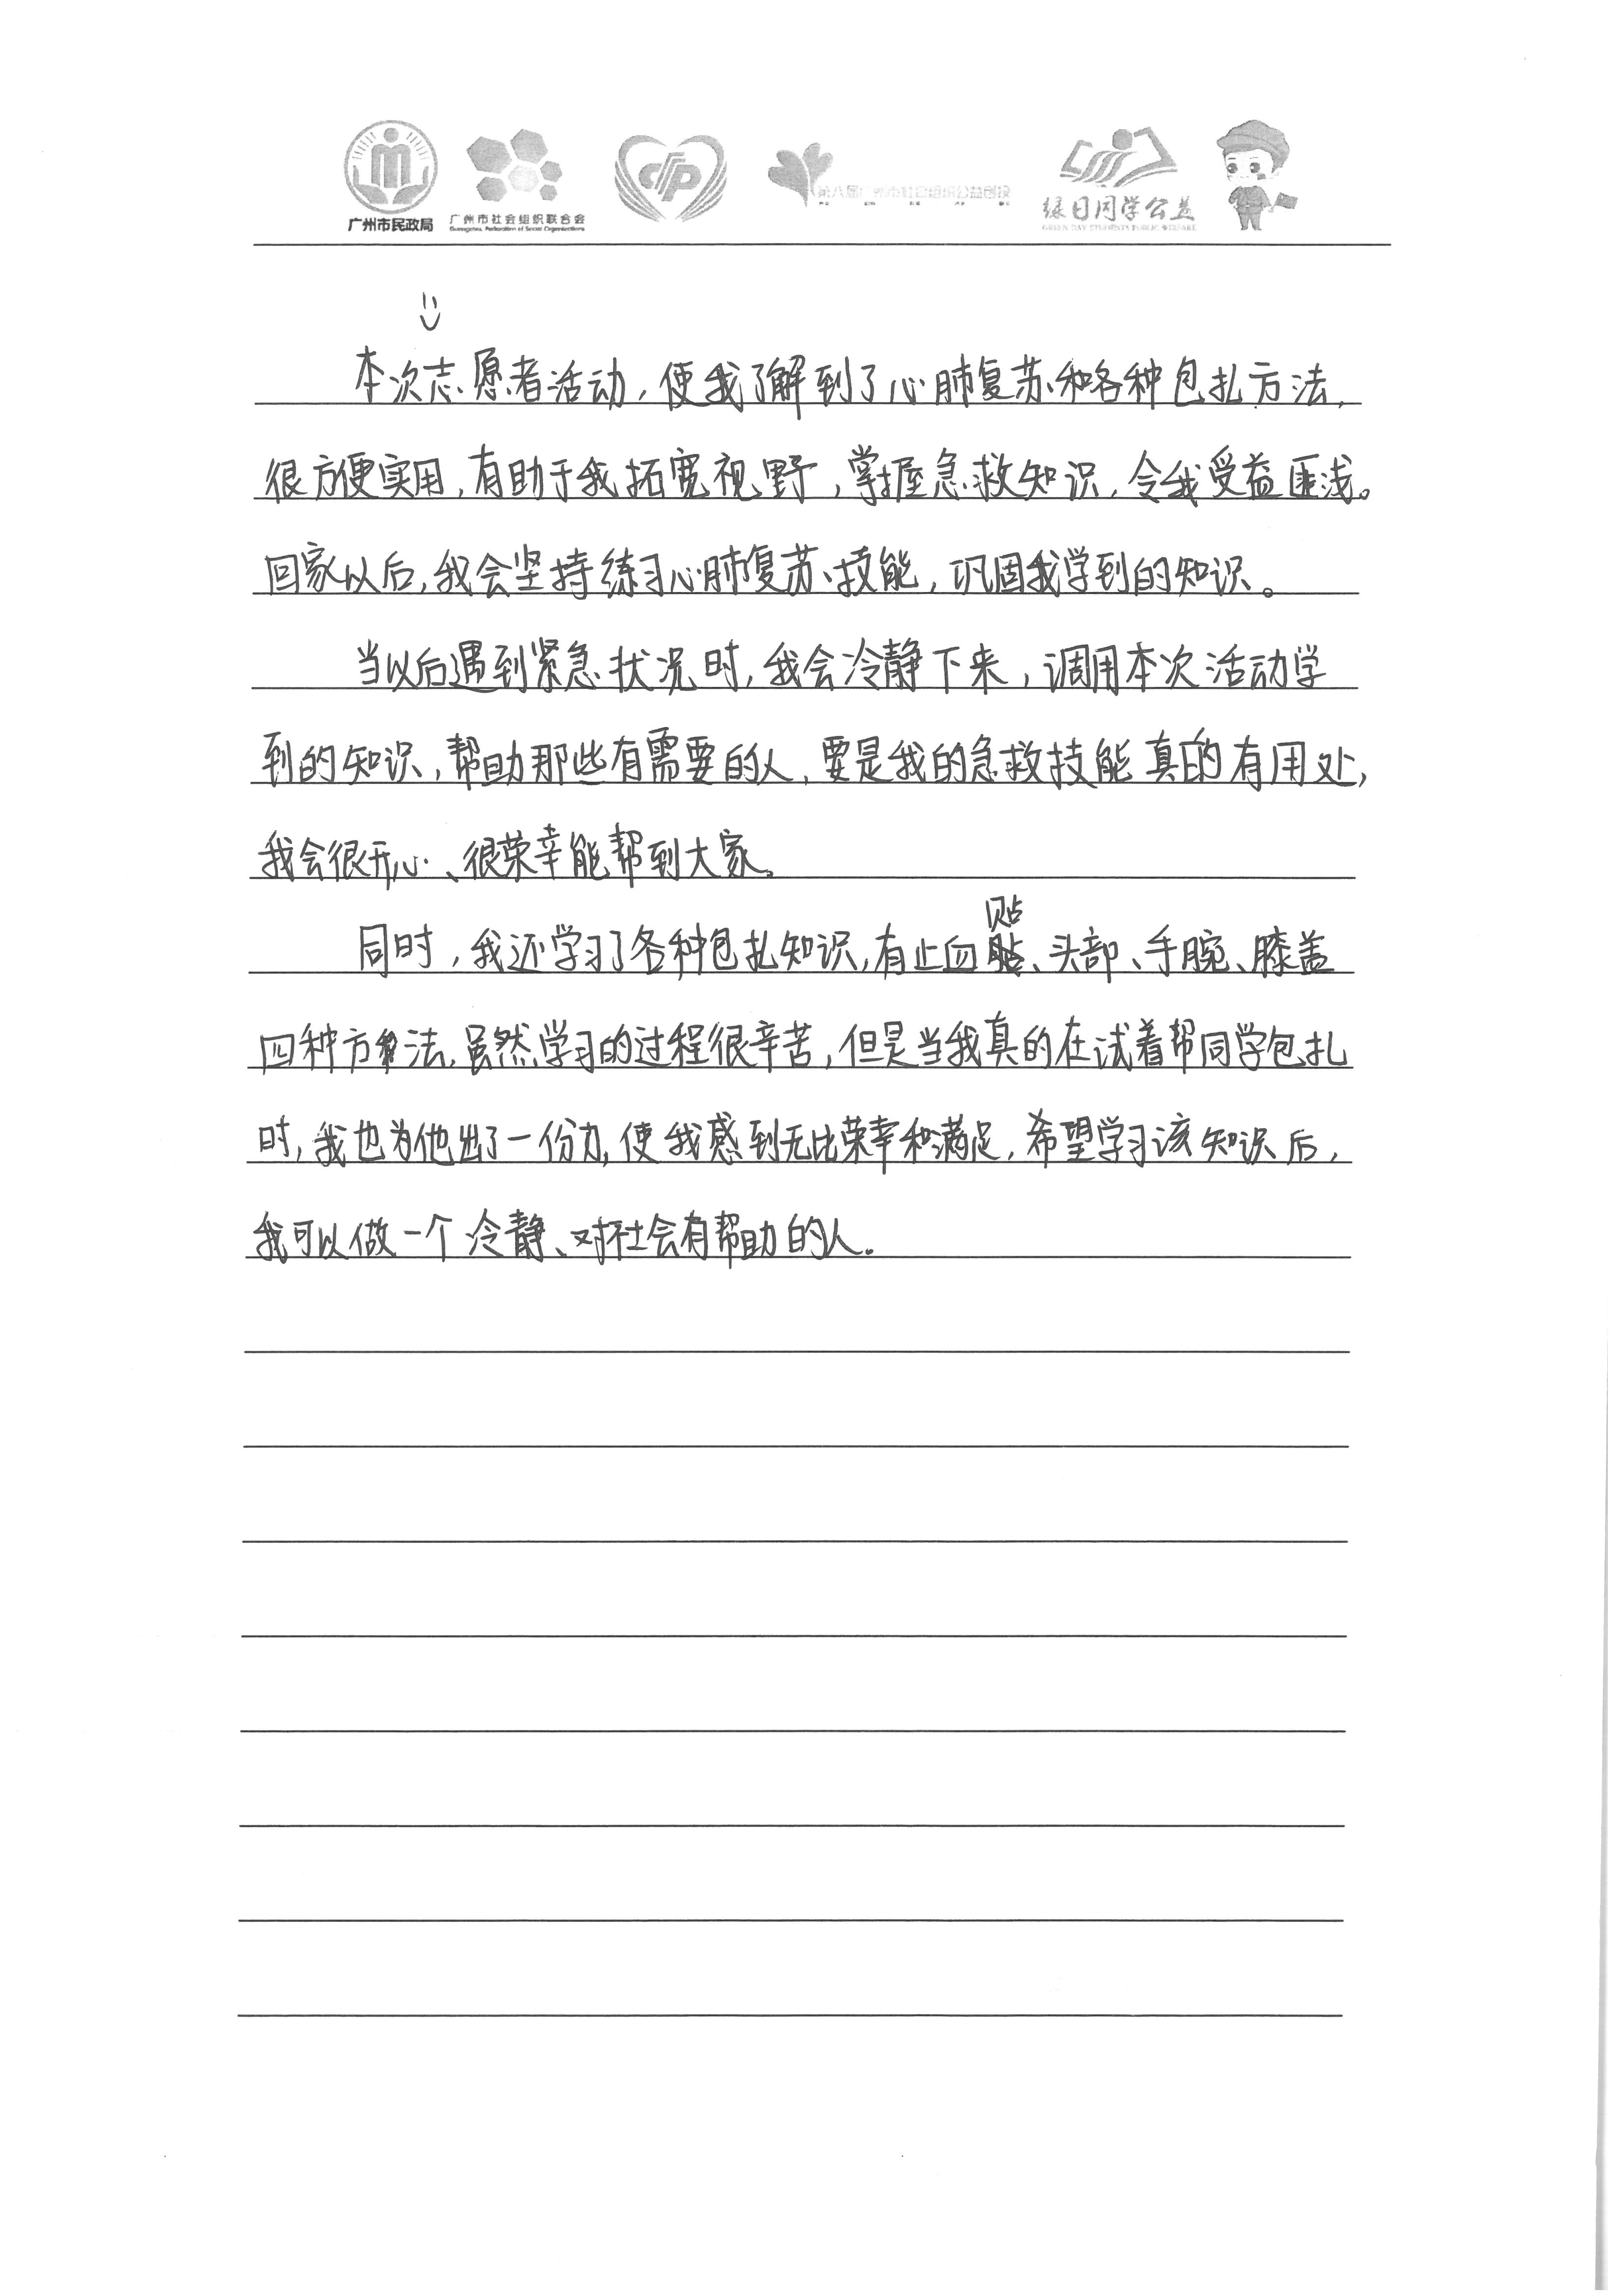 广州市民政局
广州市社会组织联合会
Guangzhou Federation of Social Organizations
第八届广州市社会组织公益创投
绿日同学公益
GREEN DAY STUDENTS PUBLIC WELFARE
本次志愿者活动，使我了解到了心肺复苏和各种包扎方法，
很方便实用，有助于我拓宽视野，掌握急救知识，令我受益匪浅。
回家以后，我会坚持练习心肺复苏技能，巩固我学到的知识。
当以后遇到紧急状况时，我会冷静下来，调用本次活动学
到的知识，帮助那些有需要的人，要是我的急救技能真的有用处，
我会很开心、很荣幸能帮到大家。
同时，我还学习了各种包扎知识，有止血贴、头部、手腕、膝盖
四种方法，虽然学习的过程很辛苦，但是当我真的在试着帮同学包扎
时，我也为他出了一份力，使我感到无比荣幸和满足，希望学习该知识后，
我可以做一个冷静、对社会有帮助的人。